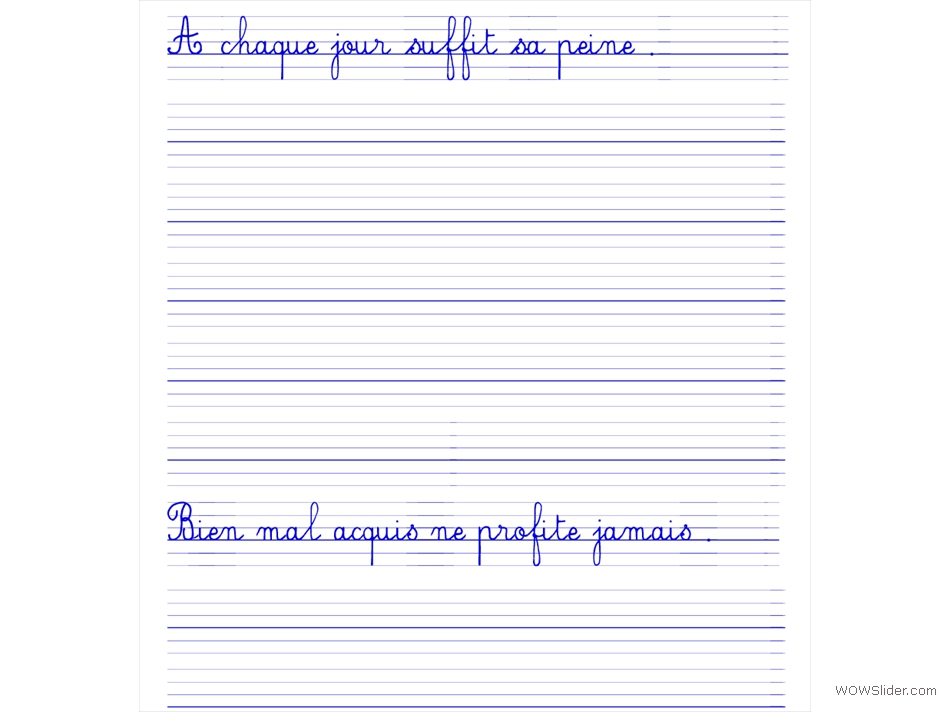 A chaque jour suffit sa peine .
Bien mal acquis ne profite jamais .
WOWSlider.com